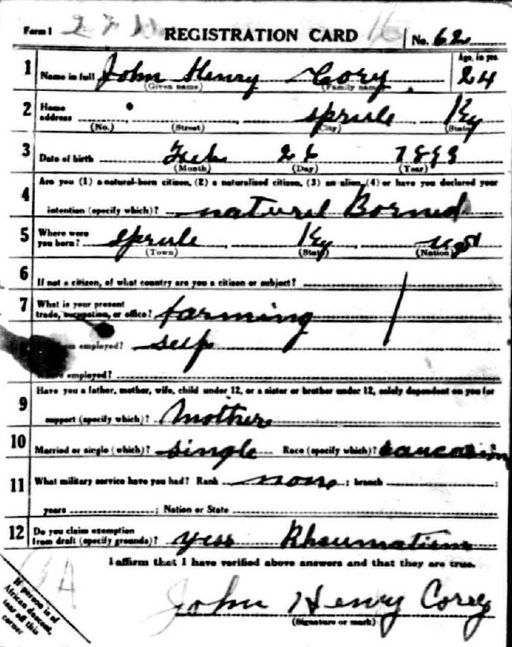 Form 1 REGISTRATION CARD No. 62
1 Name in full John Henry Cory Age, in yrs. 24
(Given name) (Family name)
2 Home address Sprule Ky
(No.) (Street) (City) (State)
3 Date of birth Feb 26 1893
(Month) (Day) (Year)
4 Are you (1) a natural-born citizen, (2) a naturalized citizen, (3) an alien, (4) or have you declared your
intention (specify which)? natural Borned
5 Where were you born? Sprule Ky
(Town) (State) (Nation)
6 If not a citizen, of what country are you a citizen or subject?
7 What is your present trade, occupation, or office? farming
employed? self
employed?
9 Have you a father, mother, wife, child under 12, or a sister or brother under 12, solely dependent on you for
support (specify which)? Mother
10 Married or single (which)? single Race (specify which)? Caucasion
11 What military service have you had? Rank none ; branch ;
years ; Nation or State
12 Do you claim exemption from draft (specify grounds)? yess Rheumatism
I affirm that I have verified above answers and that they are true.
John Henry Corey
(Signature or mark)
If person is of
African descent,
tear off this
corner